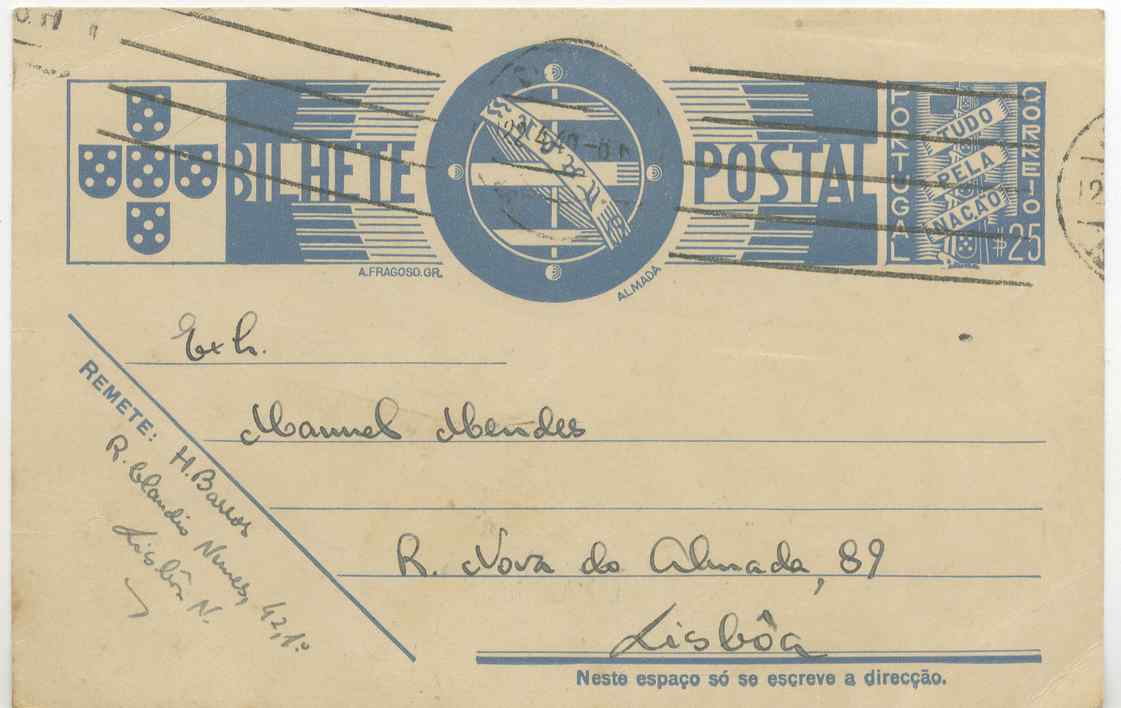 BILHETE POSTAL
PORTUGAL
TUDO
PELA
NAÇÃO
CORREIO
$25
A.FRAGOSO.GR.
ALMADA
REMETE: H. Barros
R. Claudio Nunes, 42, 1.º
Lisbôa N.
Manuel Mendes
R. Nova do Almada, 89
Lisbôa
Neste espaço só se escreve a direcção.